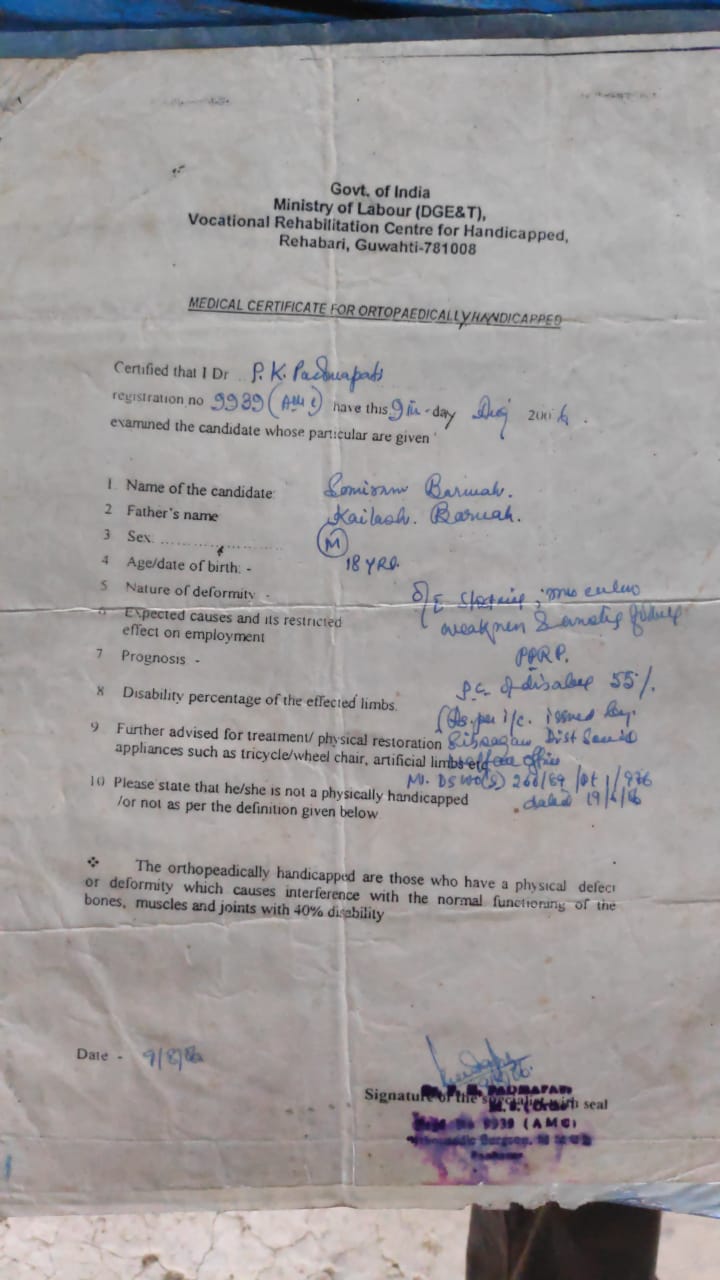 Govt. of India
Ministry of Labour (DGE&T),
Vocational Rehabilitation Centre for Handicapped,
Rehabari, Guwahti-781008
MEDICAL CERTIFICATE FOR ORTOPAEDICALLY HANDICAPPED
Certified that I Dr P. K.
registration no 9939 have this 9th day Aug 2006.
examined the candidate whose particular are given
1 Name of the candidate: Barmah.
2 Father's name Kailash. Barmah.
3 Sex. M
4 Age/date of birth: - 18 YRS.
5 Nature of deformity -
6 Expected causes and its restricted weakness
effect on employment
7 Prognosis - PPRP.
8 Disability percentage of the effected limbs. 55%.
(As per i/c. issued by
9 Further advised for treatment/ physical restoration Dist
appliances such as tricycle/wheel chair, artificial limbs etc
10 Please state that he/she is not a physically handicapped
/or not as per the definition given below dated
❖ The orthopeadically handicapped are those who have a physical defect
or deformity which causes interference with the normal functioning of the
bones, muscles and joints with 40% disability
Date - 9/8/06
Signature of the specialist with seal
M. S. (Ortho
9939 (AMC)
Surgeon,